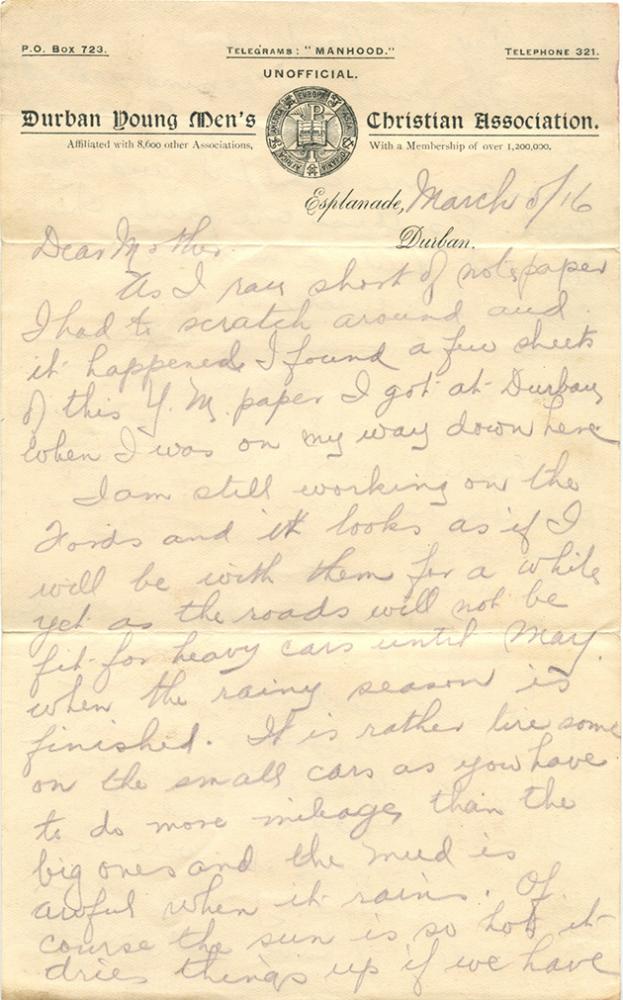 P.O. Box 723.
Telegrams: "MANHOOD."
Telephone 321.
UNOFFICIAL.
Durban Young Men's Christian Association.
Affiliated with 8,600 other Associations,
With a Membership of over 1,200,000.
Esplanade, March 5/16
Durban.
Dear Mother.
As I ran short of notepaper
I had to scratch around and
it happened I found a few sheets
of this Y. M. paper I got at Durban
when I was on my way down here
I am still working on the
Fords and it looks as if I
will be with them for a while
yet as the roads will not be
fit for heavy cars until May.
when the rainy season is
finished. It is rather tire some
on the small cars as you have
to do more mileage than the
big ones and the mud is
awful when it rains. Of
course the sun is so hot it
dries things up if we have